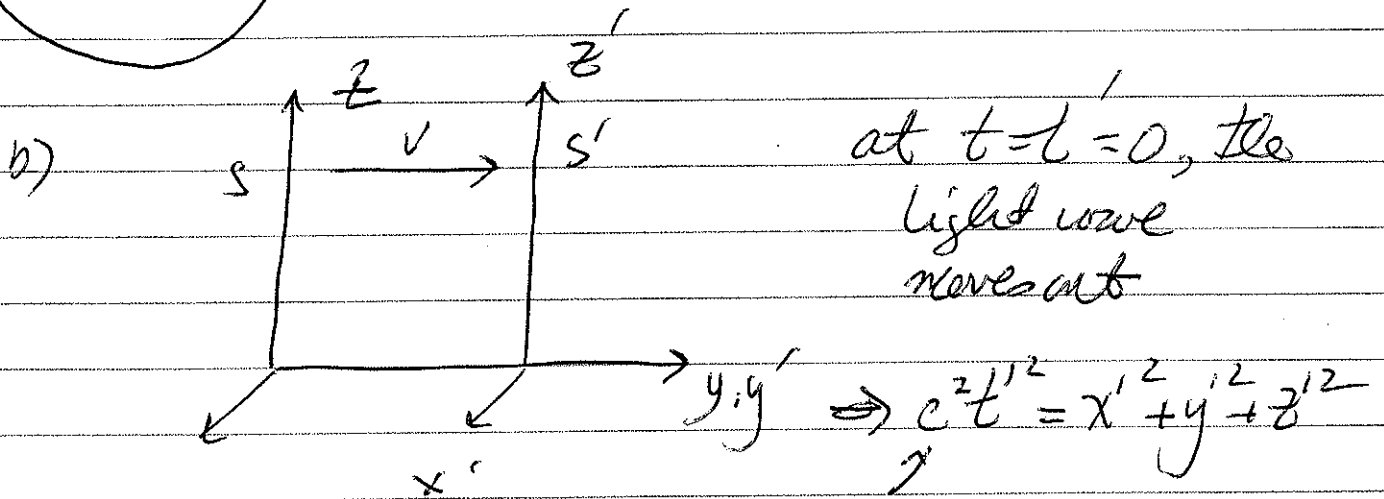 z
z'
b)
S
v
S'
at t=t'=0, the
light wave
moves out
y,y'
⇒ c²t'² = x'²+y'²+z'²
x'